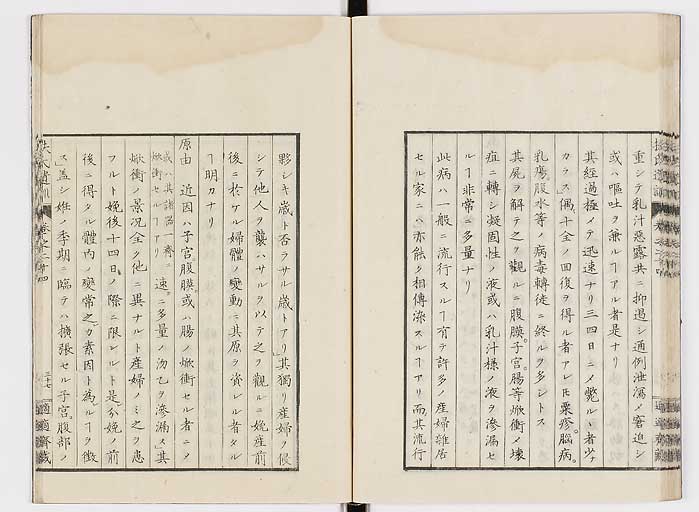 重シテ乳汁惡露共ニ抑遏シ通例泄瀉ノ窘迫シ
或ハ嘔吐ヲ兼ルヿアル者是ナリ
其經過極メテ迅速ナリ三四日ニメ斃ルヽ者少ナ
カラス偶十全ノ回復ヲ得ル者アレ𪜈粟疹。腦病。
乳瘍。腹水等ノ病毒轉徙ニ終ルヲ多シトス
其屍ヲ解テ之ヲ觀ルニ腹膜。子宮。腸等焮衝メ壊
疽ニ轉シ凝固性ノ液或ハ乳汁様ノ液ヲ滲漏セ
ルヿ非常ニ多量ナリ
此病ハ一般ニ流行スルヿ有テ許多ノ産婦雜居
セル家ニハ亦能ク相傳染スルヿアリ而其流行
夥シキ歳ト否ラサル歳トアリ其獨リ産婦ヲ侵
シテ他人ヲ襲ハサルヲ以テ之ヲ觀ルニ娩産前
後ニ於ケル婦體ノ變動ニ其原ヲ資レル者タル
ヿ明カナリ
原由 近因ハ子宮腹膜或ハ腸ノ焮衝セル者ニメ
或ハ其諸器一齊
焮衝セルヿアリ
速ニ多量ノ沕乙ヲ滲漏ス其
焮衝ノ景况全ク他ニ異ナルト産婦ノミ之ヲ患
フルト娩後十四日ノ際ニ限レルト是分娩ノ前
後ニ得タル體内ノ變常之カ素因ト為ルヿヲ徴
ス盖シ姙ノ季期ニ臨テハ擴張セル子宮。腹部ノ
扶氏遺訓 卷之二十四
三十七
適適齋藏